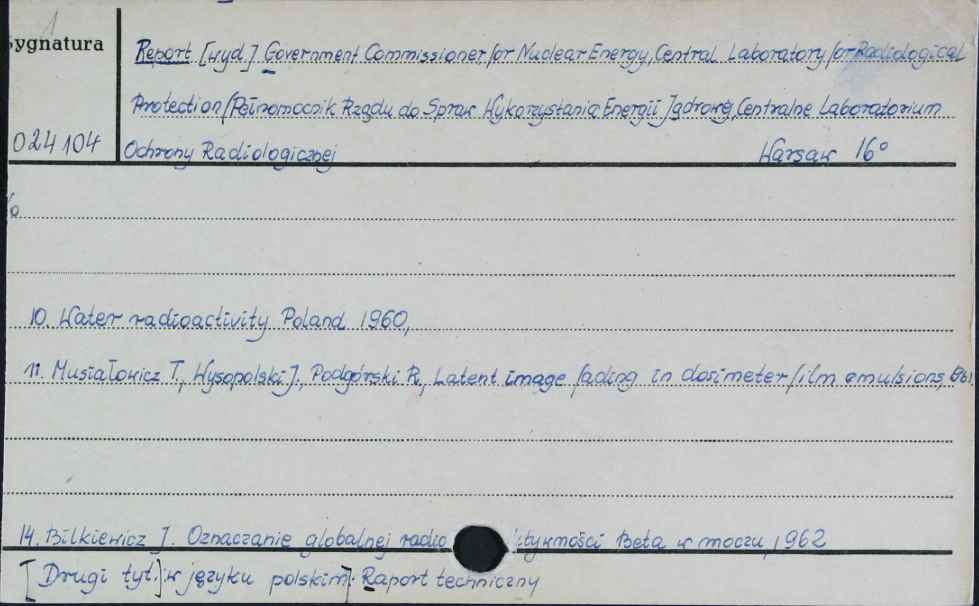 1
Sygnatura
Report [wyd.] Government Commissioner for Nuclear Energy, Central Laboratory for Radiological
Protection /Pełnomocnik Rządu do Spraw Wykorzystania Energii Jądrowej, Centralne Laboratorium
024104
Ochrony Radiologicznej Warsaw 16°
10. Water radioactivity Poland 1960,
11. Musiałowicz T., Wysopolski J., Podgórski R., Latent image fading in dosimeter film emulsions,
14. Bilkiewicz J. Oznaczanie globalnej radio tywności Beta w moczu, 1962
[Drugi tyt.] w języku polskim]. Raport techniczny